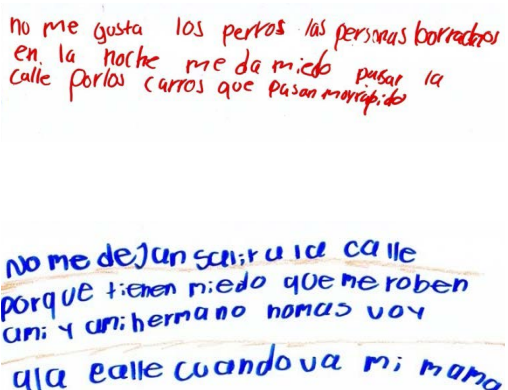 no me gusta los perros las personas borrachos
en la noche me da miedo pasar la
calle porlos carros que pasan moyrapido
No me dejan salir a la calle
porque tienen miedo que me roben
ami y amihermano nomas voy
ala calle cuando va mi mama